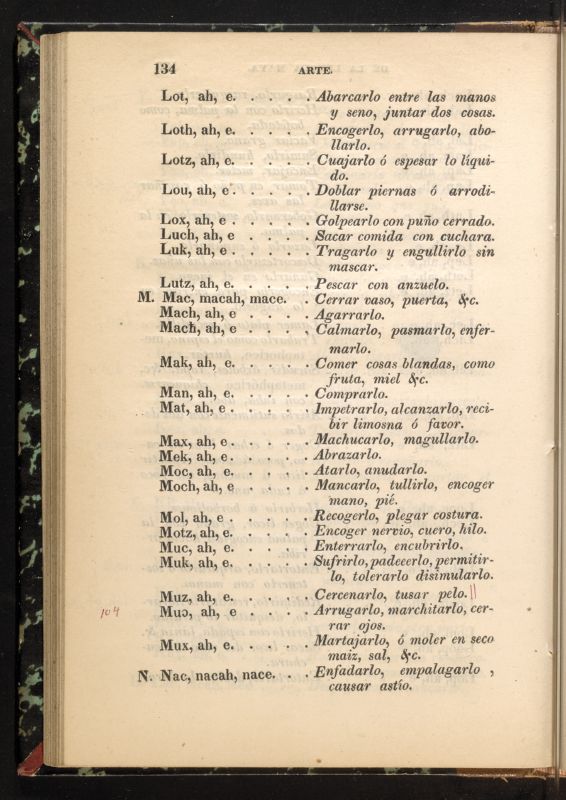 134 ARTE.
Lot, ah, e. . . . . Abarcarlo entre las manos
y seno, juntar dos cosas.
Loth, ah, e. . . . . Encogerlo, arrugarlo, abo-
llarlo.
Lotz, ah, e. . . . . Cuajarlo ó espesar lo líqui-
do.
Lou, ah, e. . . . . Doblar piernas ó arrodi-
llarse.
Lox, ah, e . . . . . Golpearlo con puño cerrado.
Luch, ah, e . . . . Sacar comida con cuchara.
Luk, ah, e . . . . . Tragarlo y engullirlo sin
mascar.
Lutz, ah, e. . . . . Pescar con anzuelo.
M. Mac, macah, mace. . Cerrar vaso, puerta, &c.
Mach, ah, e . . . . Agarrarlo.
Macħ, ah, e . . . . Calmarlo, pasmarlo, enfer-
marlo.
Mak, ah, e. . . . . Comer cosas blandas, como
fruta, miel &c.
Man, ah, e. . . . . Comprarlo.
Mat, ah, e . . . . . Impetrarlo, alcanzarlo, reci-
bir limosna ó favor.
Max, ah, e . . . . . Machucarlo, magullarlo.
Mek, ah, e . . . . . Abrazarlo.
Moc, ah, e. . . . . Atarlo, anudarlo.
Moch, ah, e . . . . Mancarlo, tullirlo, encoger
mano, pié.
Mol, ah, e . . . . . Recogerlo, plegar costura.
Motz, ah, e. . . . . Encoger nervio, cuero, hilo.
Muc, ah, e. . . . . Enterrarlo, encubrirlo.
Muk, ah, e. . . . . Sufrirlo, padecerlo, permitir-
lo, tolerarlo disimularlo.
Muz, ah, e. . . . . Cercenarlo, tusar pelo.
104 Muɔ, ah, e . . . . Arrugarlo, marchitarlo, cer-
rar ojos.
Mux, ah, e. . . . . Martajarlo, ó moler en seco
maiz, sal, &c.
N. Nac, nacah, nace. . . Enfadarlo, empalagarlo ,
causar astío.